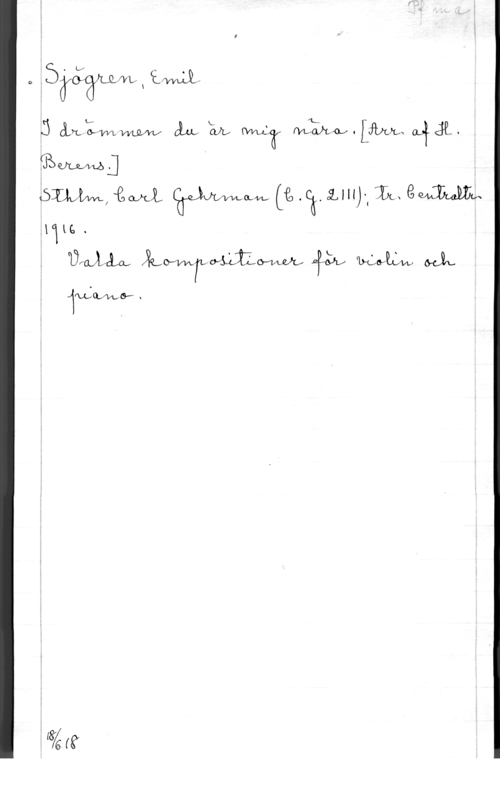 Sjögren, Emil
I drömmen du är mig nära. [Arr. af H.
Berens.]
Sthlm, Carl Gehrman (C. G. 2111); tr. Centraltr.
1916.
Valda kompositioner för violin och
piano.
18/6 18